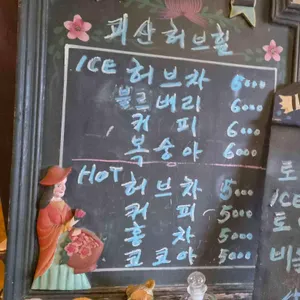 괴산허브힐
ICE 허브차 6000
블루베리 6000
커 피 6000
복숭아 6000
HOT 허브차 5000
커 피 5000
홍 차 5000
코코아 5000
토
ICE